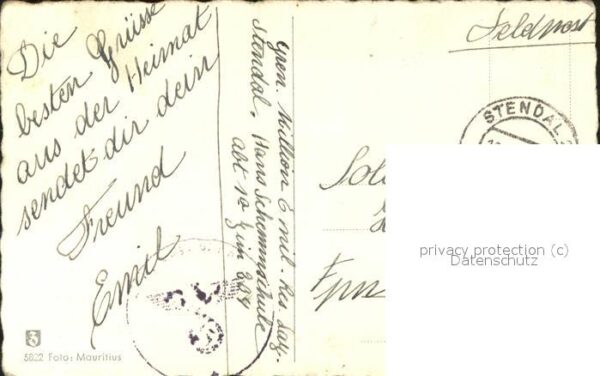 Die
besten Grüsse
aus der Heimat
sendet dir dein
Freund
Emil
Gren. Emil. Res. Laz.
Stendal, Hans Schemmschule
abt 10 Zim 204
Feldpost
STENDAL
Sol
Fpn
privacy protection (c)
Datenschutz
5822 Foto: Mauritius